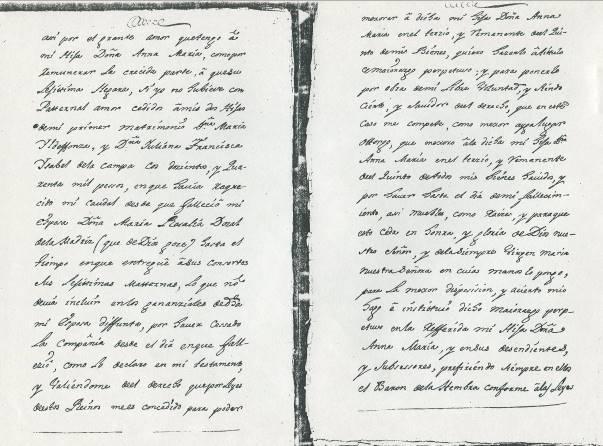 assi por el grande amor que tengo á
mi Hija Doña Anna Maria, como por
remunerar la crecida parte, á que su
Lejitima llegara, si yo no hubiera con
Patternal amor cedido á mis dos Hijas
de mi primer matrimonio D.ña Maria
Yldefonza, y D.ña Juliana Francisca
Ysabel de la Campa cos dozientos, y qua-
renta mil pesos, en que havia
cido mi caudal desde que fallecio mi
Esposa Doña Maria Rosalia Dozal
de la Madriz (que de Dios goze) hasta el
tiempo en que entregué á sus consortes
sus Lejitimas Matternas, lo que no
devia incluir en los gananziales de dha
mi Esposa diffunta, por haver cessado
la Compañia desde el dia en que falle-
ció, como lo declaro en mi testamento,
y valiendome del derecho que por Leyes
de estos Reinos me es concedido para poder
mexorar á dicha mi Hija Doña Anna
Maria en el terzio, y remanente del Quin-
to de mis Bienes, quiero hazerlo á titulo
de maiorazgo perpetuo, y para ponerlo
por obra de mi libre Voluntad, y siendo
cierto, y savidor del derecho, que en este
caso me compete, como mexor aya lugar
otorgo, que mexoro á la dicha mi Hija D.ña
Anna Maria en el terzio, y remanente
del Quinto de todos mis Bienes havidos, y
por haver hasta el dia de mi fallecim-
iento, assi muebles, como raizes, y para que
esto ceda en honra, y gloria de Dios nue-
stro Señor, y de la siempre Virgen maria
nuestra Señora en cuias manos lo pongo,
para la mejor disposicion, y acierto mio
hago é instituio dicho maiorazgo perp-
etuo en la refferida mi Hija Doña
Anna Maria, y en sus desendientes,
y subsessores, prefiriendo siempre en ellos
el Baron de la Hembra conforme á las Leyes